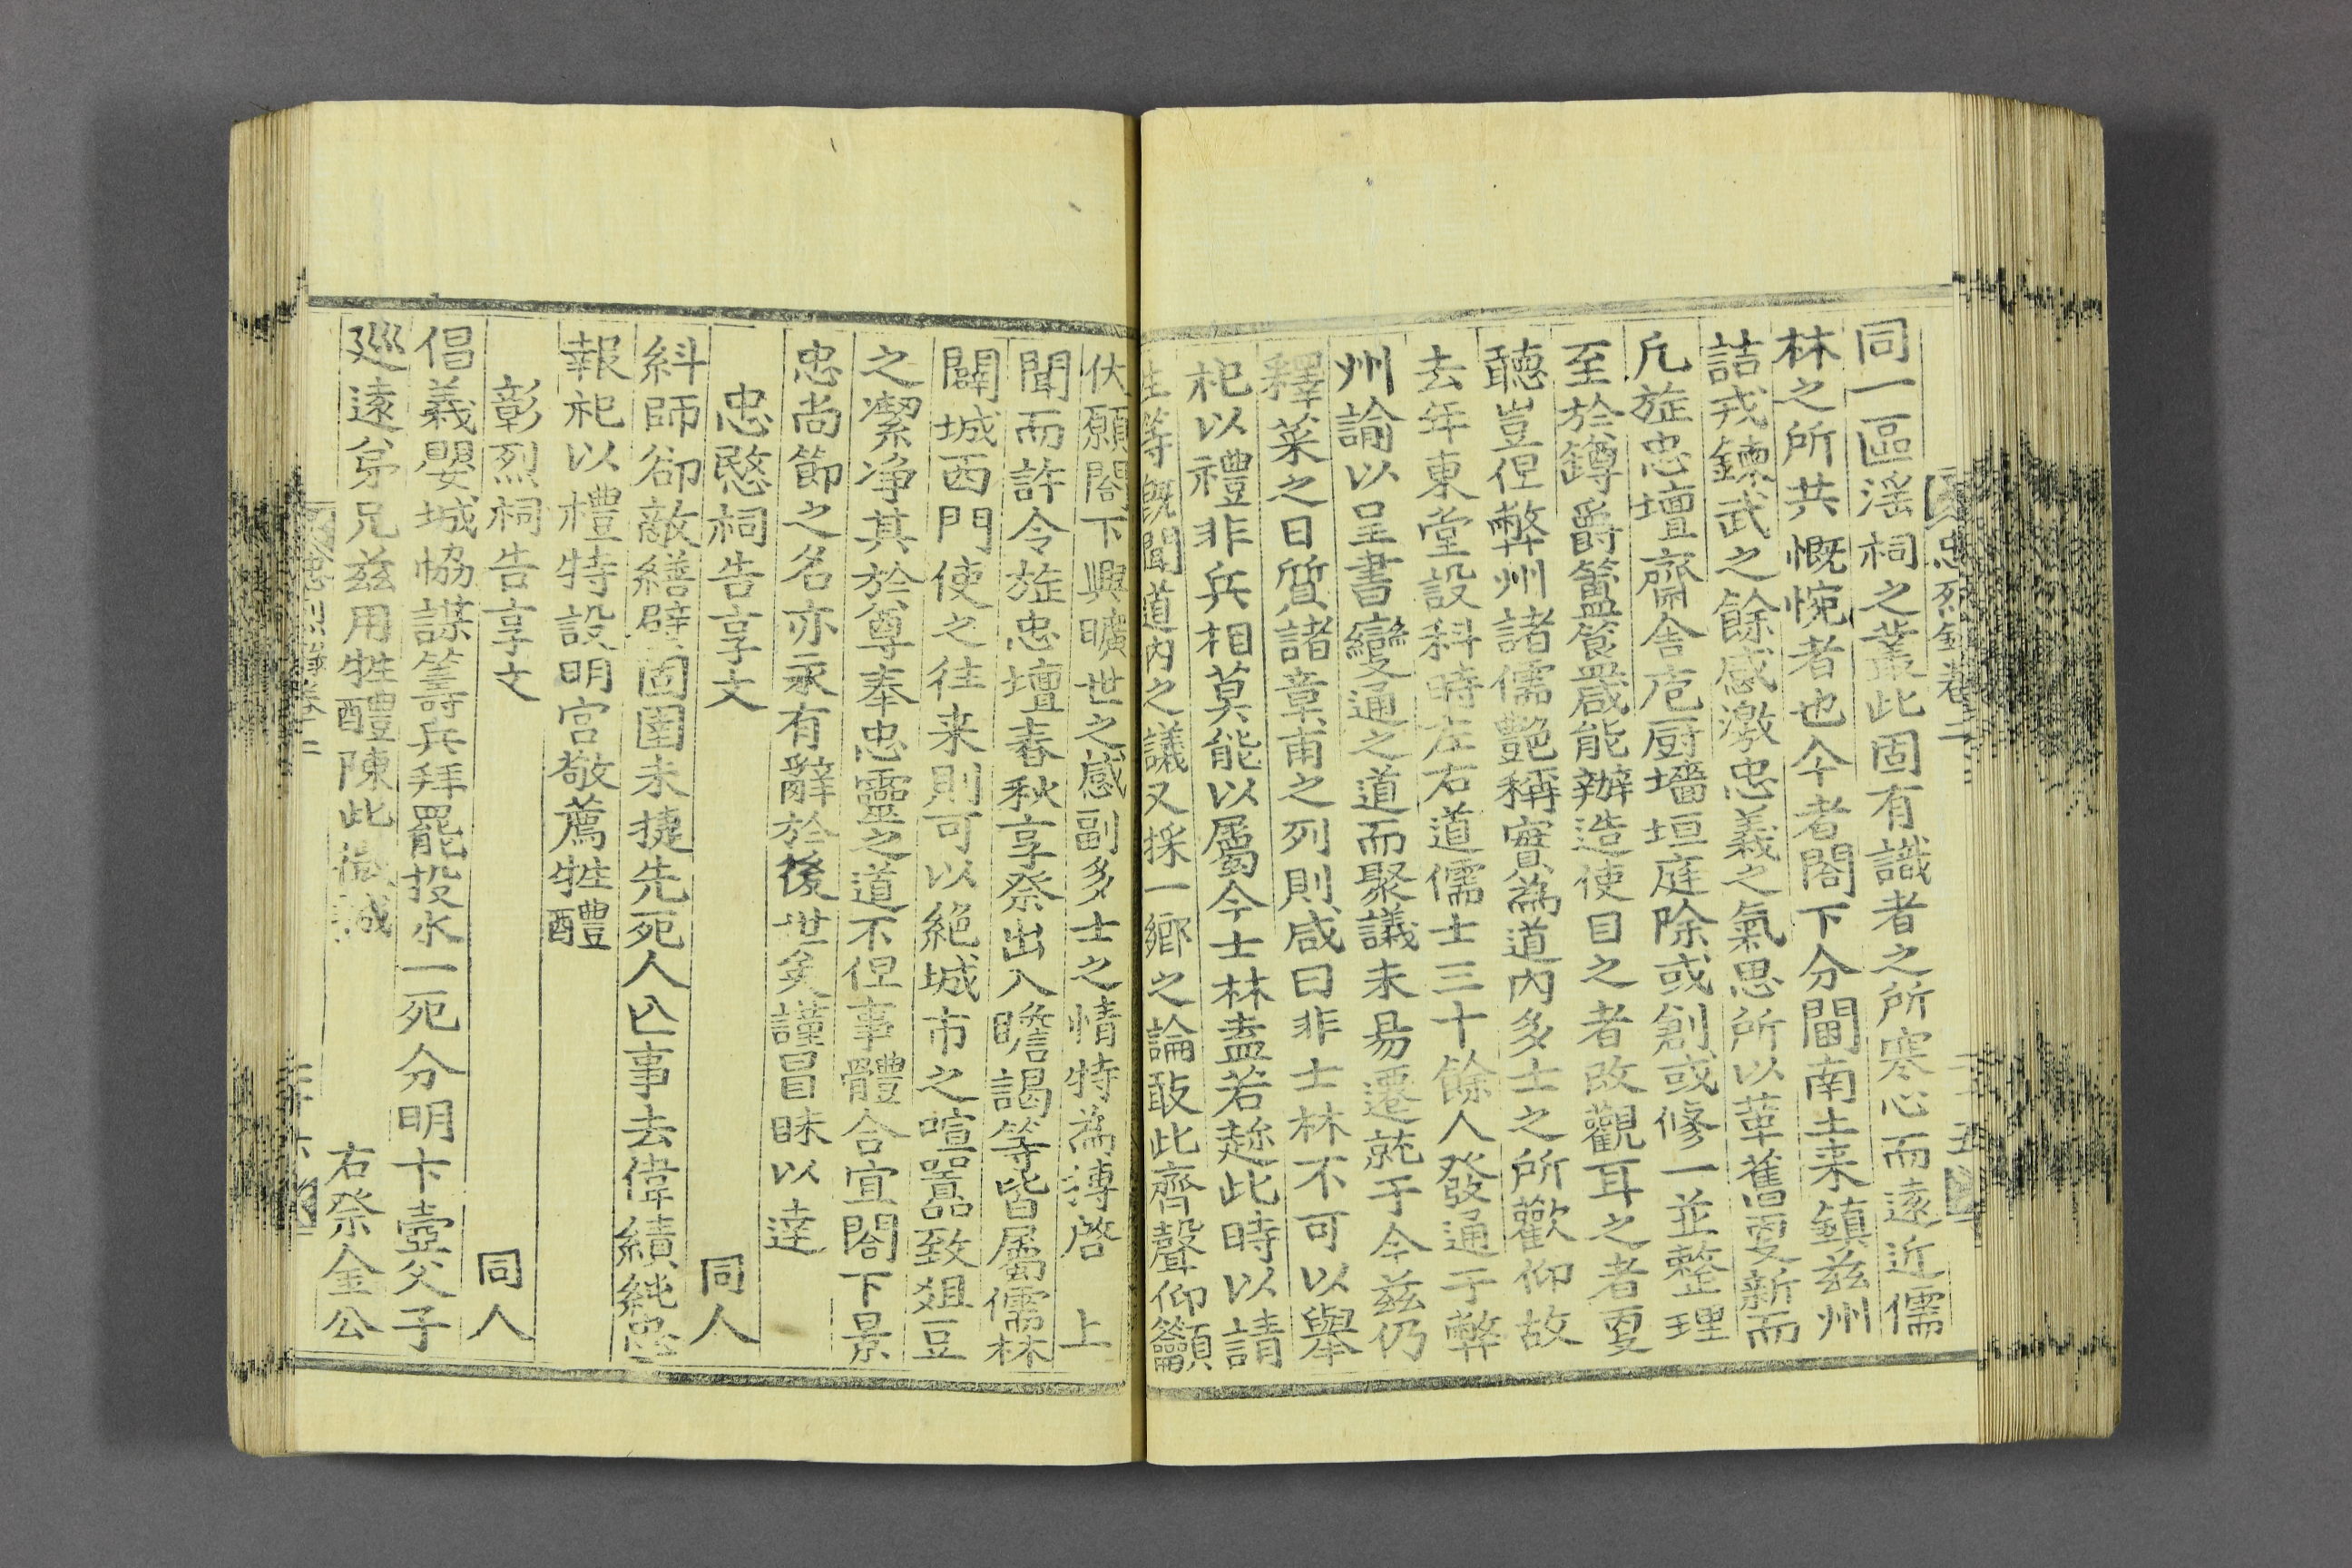 忠烈錄卷之二
二十五
同一區淫祠之叢此固有識者之所寒心而遠近儒
林之所共慨惋者也今者閤下分閫南土来鎮茲州
詰戎鍊武之餘感激忠義之氣思所以革舊更新而
凡旌忠壇齋舍庖厨墻垣庭除或創或修一並整理
至於鐏爵簠簋罔不能辦造使目之者改觀耳之者更
聽豈但弊州諸儒艶稱實為道內多士之所歡仰故
去年東堂設科時左右道儒士三十餘人發通于弊
州諭以呈書變通之道而聚議未易遷就于今茲仍
釋菜之日質諸章甫之列則咸曰非士林不可以舉
祀以禮非兵相莫能以屬今士林盍若趂此時以請
生等旣聞道內之議又採一鄕之論敢此齊聲仰籲
伏願閤下興曠世之感副多士之情特為轉啓 上
聞而許令旌忠壇春秋享祭出入瞻謁等皆屬儒林
闢城西門使之往来則可以絕城市之喧囂致俎豆
之潔净其於尊奉忠靈之道不但事體合宜閤下景
忠尚節之名亦永有辭於後世矣謹冒昧以達
忠愍祠告享文 同人
糾師卻敵繕壁固圉未捷先死人亡事去偉績純忠
報祀以禮特設明宮敬薦牲醴
彰烈祠告享文 同人
倡義嬰城恊謀籌兵拜罷投水一死分明卞壼父子
廵遠弟兄茲用牲醴陳此微誠 右祭金公
忠烈錄卷之二
二十六